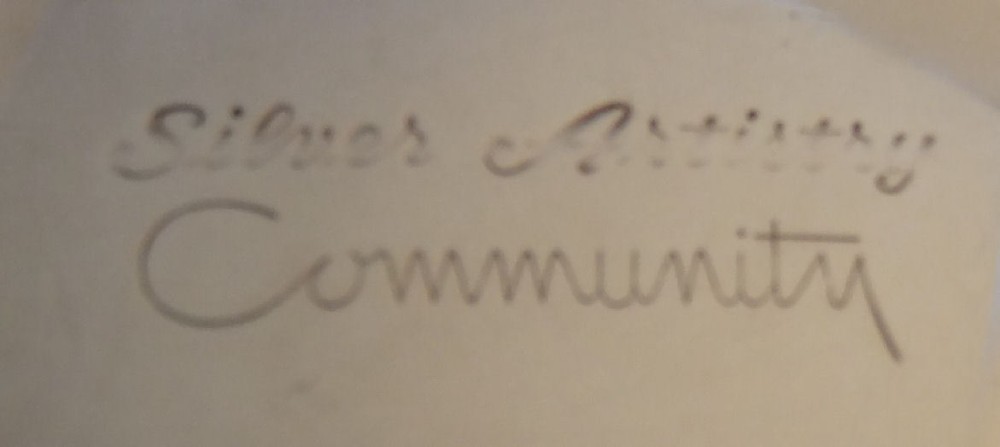 Silver Artistry
Community